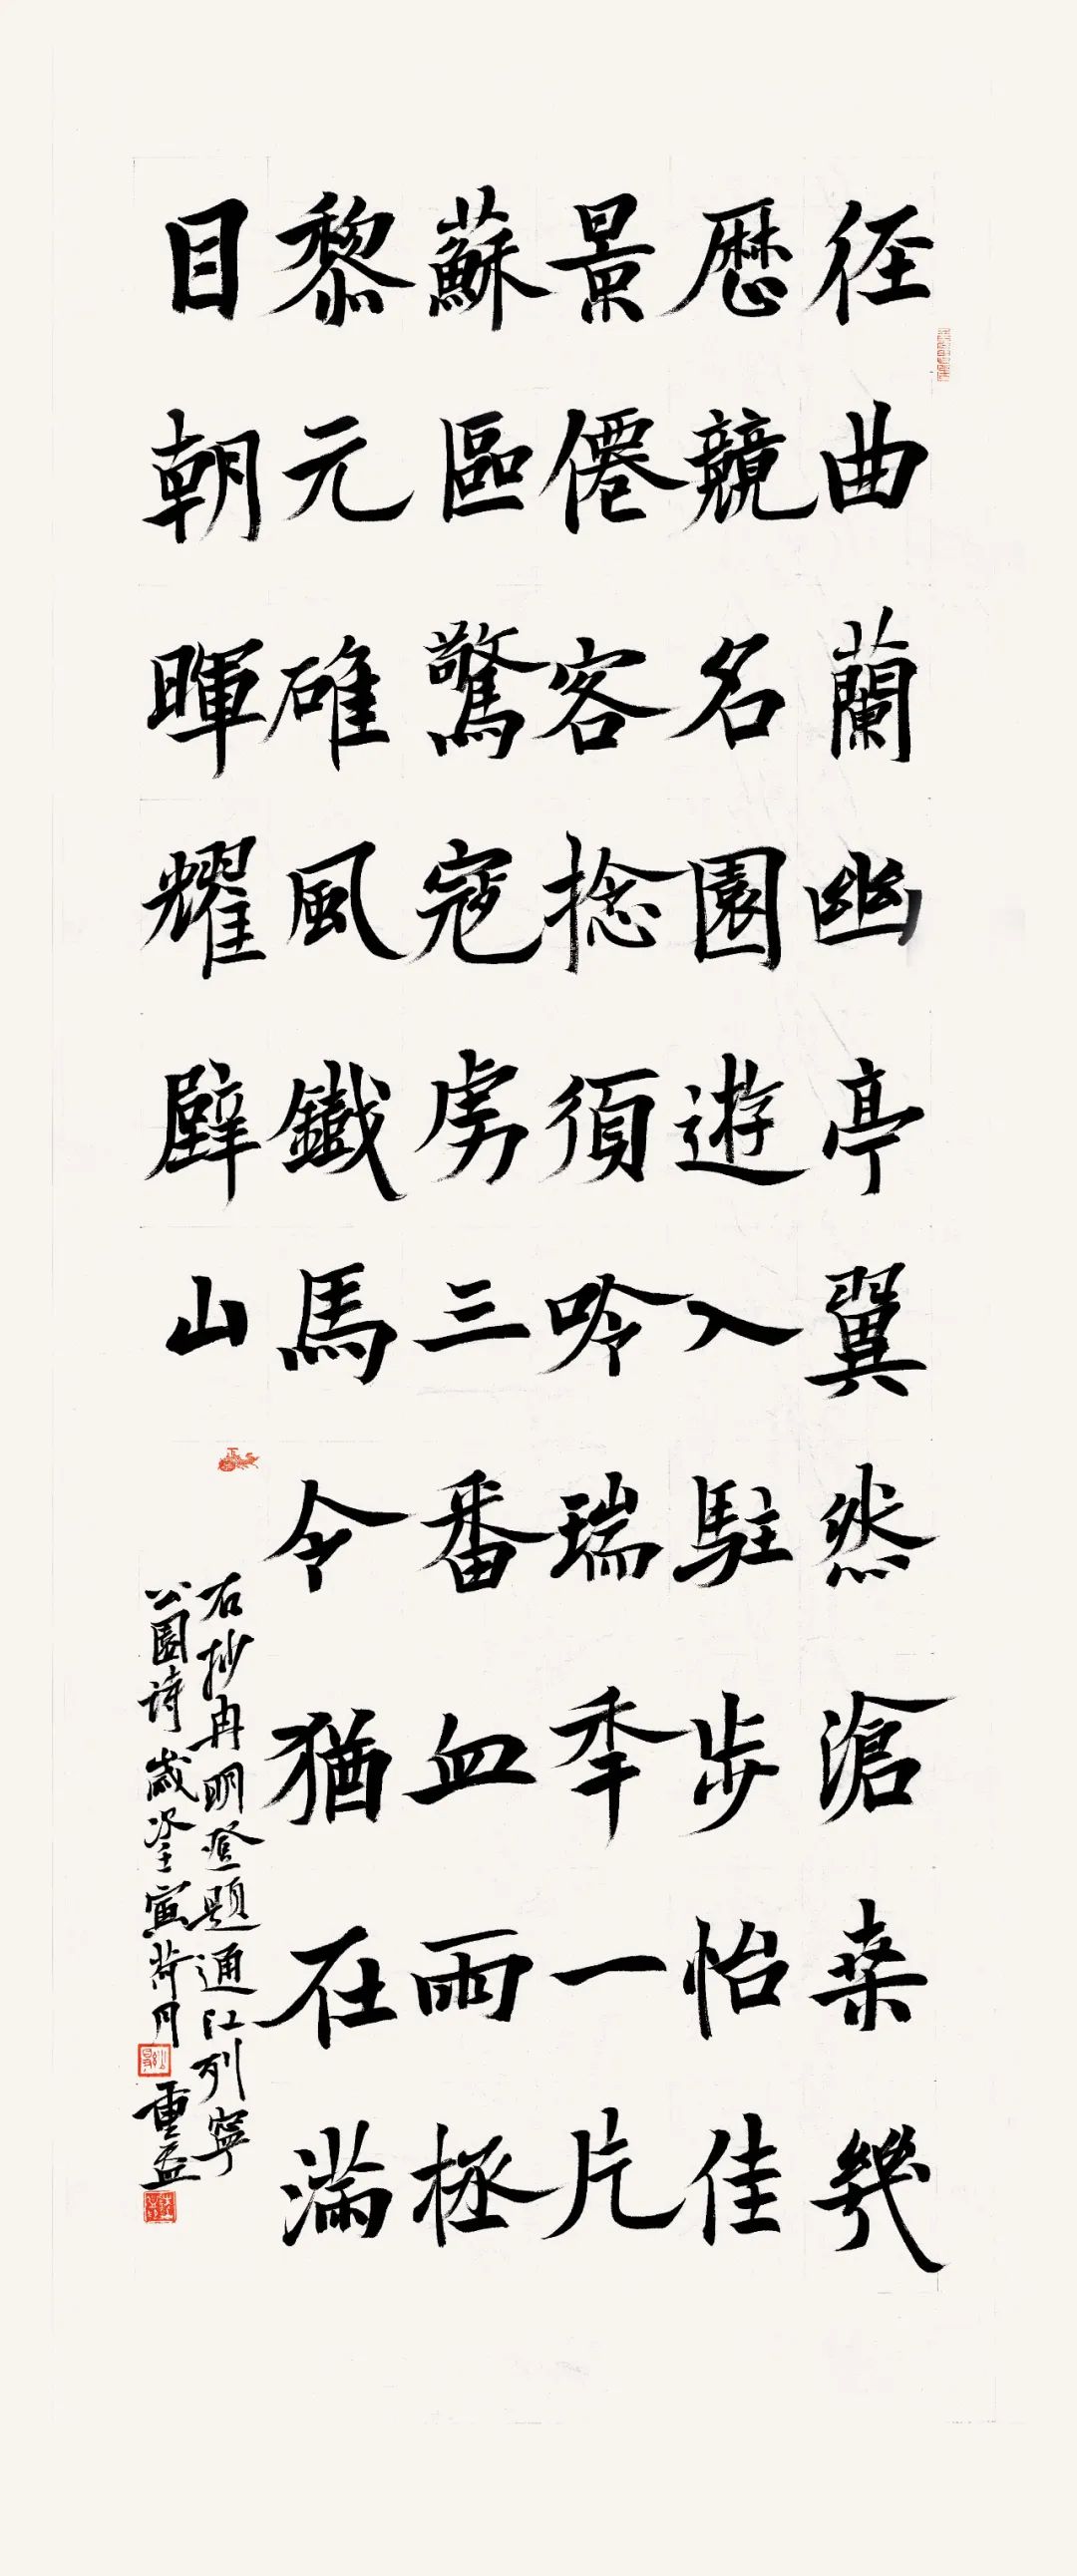 径曲蘭幽亭翼然滄桑幾
歷競名園遊人駐步怡佳
景僊客捻須吟瑞年一片
蘇區驚寇虜三番血雨拯
黎元碓風鐵馬今猶在滿
目朝暉耀壁山
右抄冉明登題通江列寧
公園詩歲壬寅荷月
重益